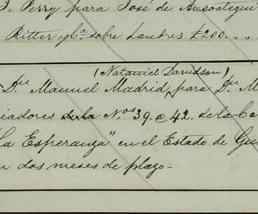 Perry para José de Ansoategui
Ritter y Cª sobre Londres £200.. "
(Nataniel Davidson)
Dn Manuel Madrid, para Dn M
iadores de la Nos 39. @ 42. de la Ca
La Esperanza" en el Estado de Gu
n dos meses de plazo.-